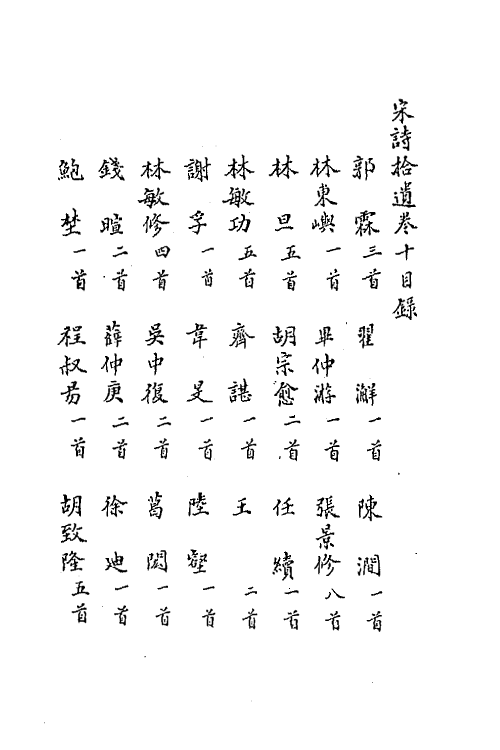 宋詩拾遺卷十目錄
郭霖三首 翟澥一首 陳潤一首
林東嶼一首 畢仲游一首 張景修八首
林旦五首 胡宗愈二首 任續一首
林敏功五首 齊諶一首 王 二首
謝孚一首 韋旻一首 陸壑一首
林敏修四首 吳中復二首 葛閎一首
錢暄二首 薛仲庚二首 徐迪一首
鮑埜一首 程叔昜一首 胡致隆五首